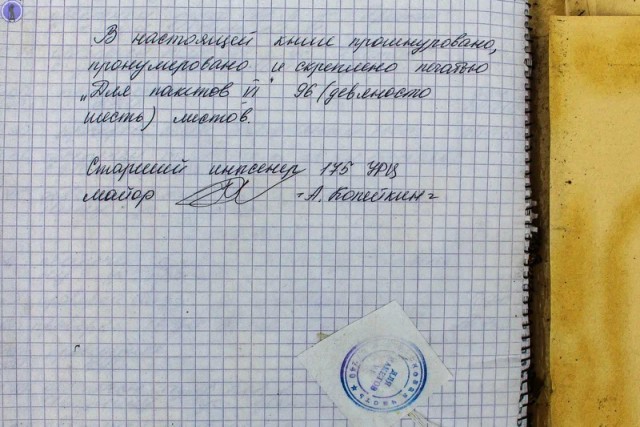 В настоящей книге прошнуровано,
пронумеровано и скреплено печатью
„Для пакетов VI" 96 (девяносто
шесть) листов.
Старший инженер 175 УРЦ
майор А. Копейкин
ДЛЯ
ПАКЕТОВ